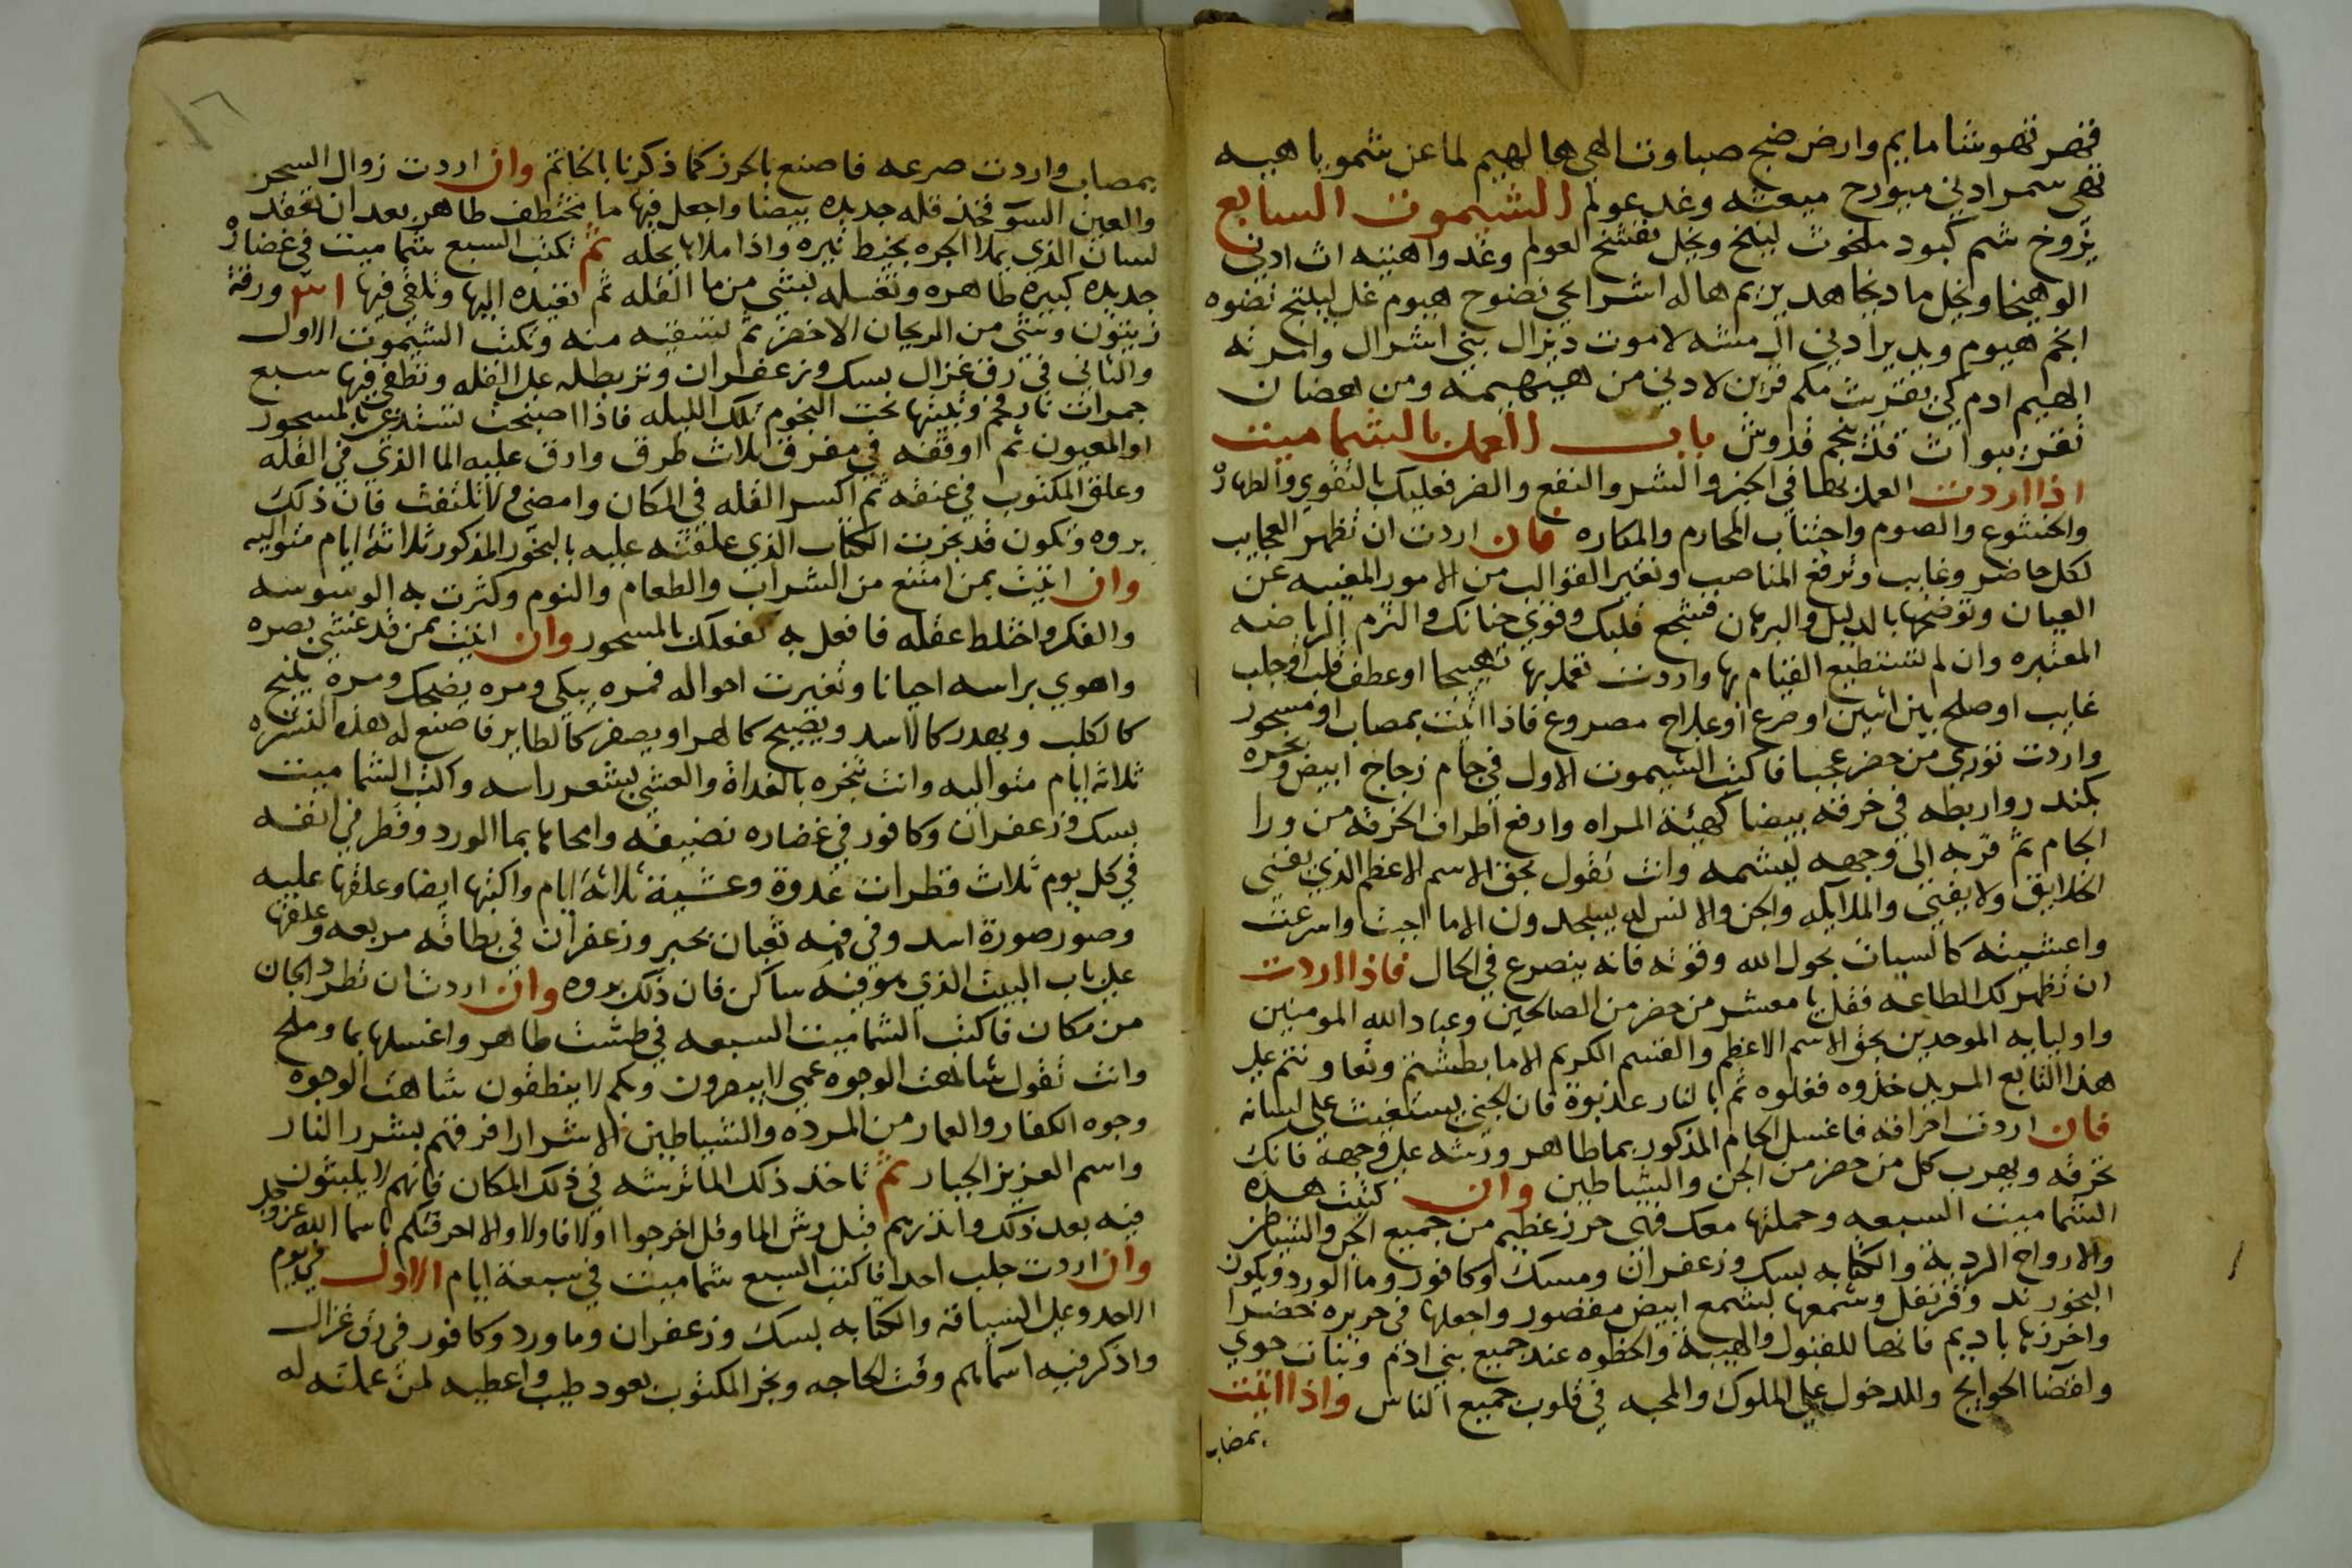 شامايم وارض ضج صباوت الهى هالهيم لماعن شمو ياهيه
ادنى ميعته وغد عولم الشيموت السابع
شم كبود ملخوث لينلخ وبخل نفشخ لعولم وغد واهنيه اث ادنى
وبخل ما دبخاهد
هيوم ادنى لاموت بنى اشرال
الهيم ادم كى من ومن
قدوش باب العمل بالشماميت
اذا اردت العمل بها فى الخير والشر والنفع والضر فعليك بالتقوي والطهارة
والخشوع والصوم واجتناب المحارم والمكاره فان اردت ان تظهر العجايب
لكل حاضر وغايب وترفع المناصب وتغير القوالب من الامور المغيبه عن
العيان وتوضحها بالدليل والبرهان فشجع قلبك وقوي جنانك والتزم الرياضه
المعتبره وان لم تستطيع القيام بها واردت تعمل بها تهييجا او عطف قلب او جلب
غايب او صلح بين اثنين او صرع او علاج مصروع فاذا اتيت بمصاب او مسحور
واردت توري من حضر عجبا فاكتب الشيموت الاول فى جام زجاج ابيض وبخره
بكندر واربطه فى خرقه بيضا كهيئة المراه وارفع اطراف الخرقه من ورا
الجام ثم قربه الى وجهه ليشمه وانت تقول بحق الاسم الاعظم الذي يفنى
الخلايق ولا يفنى والملايكه والجن والانس له يسجدون الا ما اجبت واسرعت
واعشيته كالسبات بحول الله وقوته فانه ينصرع فى الحال فاذا اردت
ان تظهر لك الطاعه فقل يا معشر من حضر من الصالحين وعباد الله المومنين
واوليايه الموحدين بحق الاسم الاعظم والقسم الكريم الا ما بطشتم وتعاونتم على
هذا التابع المريد خذوه فغلوه ثم بالنار عذبوة فان الجنى يستغيث على لسانه
فان اردت احراقه فاغسل الجام المذكور بما طاهر ورشه على وجهه فانك
تحرقه ويهرب كل من حضر من الجن والشياطين وان كتبت هذه
الشماميت السبعه وحملتها معك فهى حرز عظيم من جميع الجن والشياطين
والارواح الرديه والكتابه بسك وزعفران ومسك او كافور وما الورد ويكون
البخور ند وقرنفل وشمعها بشمع ابيض مقصور واجعلها فى حريره خضرا
واخرزها باديم فانها للقبول والهيبة والحظوه عند جميع بنى ادم وبنات حوي
واقضا الحوايج وللدخول على الملوك والمحبه فى قلوب جميع الناس واذا اتيت
بمصاب
بمصاب واردت صرعه فاصنع بالحرز كما ذكرنا بالخاتم وان اردت زوال السحر
والعين السو فخذ قله جديده بيضا واجعل فيها ما مختطف طاهر بعد ان تعقد
لسان الذي يملا الجره بخيط نيره واذا ملاها يحله ثم تكتب السبع شماميت فى غضارة
جديده كبيره طاهره وتغسله بشى من ما القله ثم تعيده اليها وتلقى فيها ورقة
زيتون وشى من الريحان الاخضر ثم تسقيه منه وتكتب الشيموت الاول
والثانى فى رق غزال بسك وزعفران وتربطه على القله وتطفى فيها سبع
جمرات نار فحم وتبيتها تحت النجوم تلك الليله فاذا اصبحت تستدعى بالمسحور
او المعيون ثم اوقفه فى مفرق ثلاث طرق وارق عليه الما الذي فى القله
وعلق المكتوب فى عنقه ثم اكسر القله فى المكان وامضى ولا تلتفت فان ذلك
بروه وتكون قد بخرت الكتاب الذي علقته عليه بالبخور المذكور ثلاثة ايام متواليه
وان اتيت بمن امتنع من الشراب والطعام والنوم وكثرت به الوسوسه
والفكر واختلط عقله فافعل به كفعلك بالمسحور وان اتيت بمن قد غشى بصره
واهوي براسه احيانا وتغيرت احواله فمره يبكى ومره يضحك ومره ينبح
كالكلب ويهدر كالاسد ويصيح كالهر او يصفر كالطاير فاصنع له هذه النشره
ثلاثه ايام متواليه وانت تبخره بالغداة والعشى بشعر راسه واكتب الشماميت
بسك وزعفران وكافور فى غضاره نضيفه وامحاها بما الورد وقطر فى انفه
فى كل يوم ثلاث قطرات غدوة وعشية ثلاثة ايام واكتبها ايضا وعلقها عليه
وصور صورة اسد وفى فمه ثعبان بحبر وزعفران فى بطاقه مربعه وعلقها
على باب البيت الذي هو فيه ساكن فان ذلك بروه وان اردت ان تطرد الجان
من مكان فاكتب الشماميت السبعه فى طشت طاهر واغسلها بما وملح
وانت تقول شاهت الوجوه عمى لا يبصرون وبكم لا ينطقون شاهت الوجوه
وجوه الكفار والعمار من المرده والشياطين الاشرار افرقتهم بشرر النار
واسم العزيز الجبار ثم تاخذ ذلك الما ترشه فى ذلك المكان فانهم لا يلبثون
فيه بعد ذلك وانذرهم قبل رش الما وقل اخرجوا اولا فاولا والا احرقتكم باسما الله عز وجل
وان اردت جلب احدا فاكتب السبع شماميت فى سبعة ايام الاول فى يوم
الاحد وعلى السياقة والكتابه بسك وزعفران وما ورد وكافور فى رق غزال
واذكر فيه اسمايهم وقت الحاجه وبخر المكتوب بعود طيب واعطيه لمن عملته له